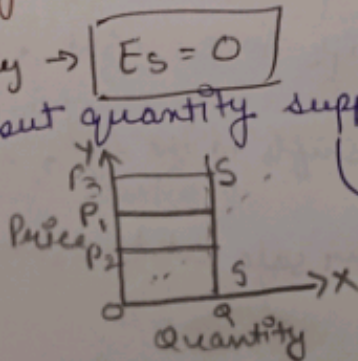 y → Es = 0
out quantity supp
Y
P3 S
P1
Price
P2
S
O Q X
Quantity